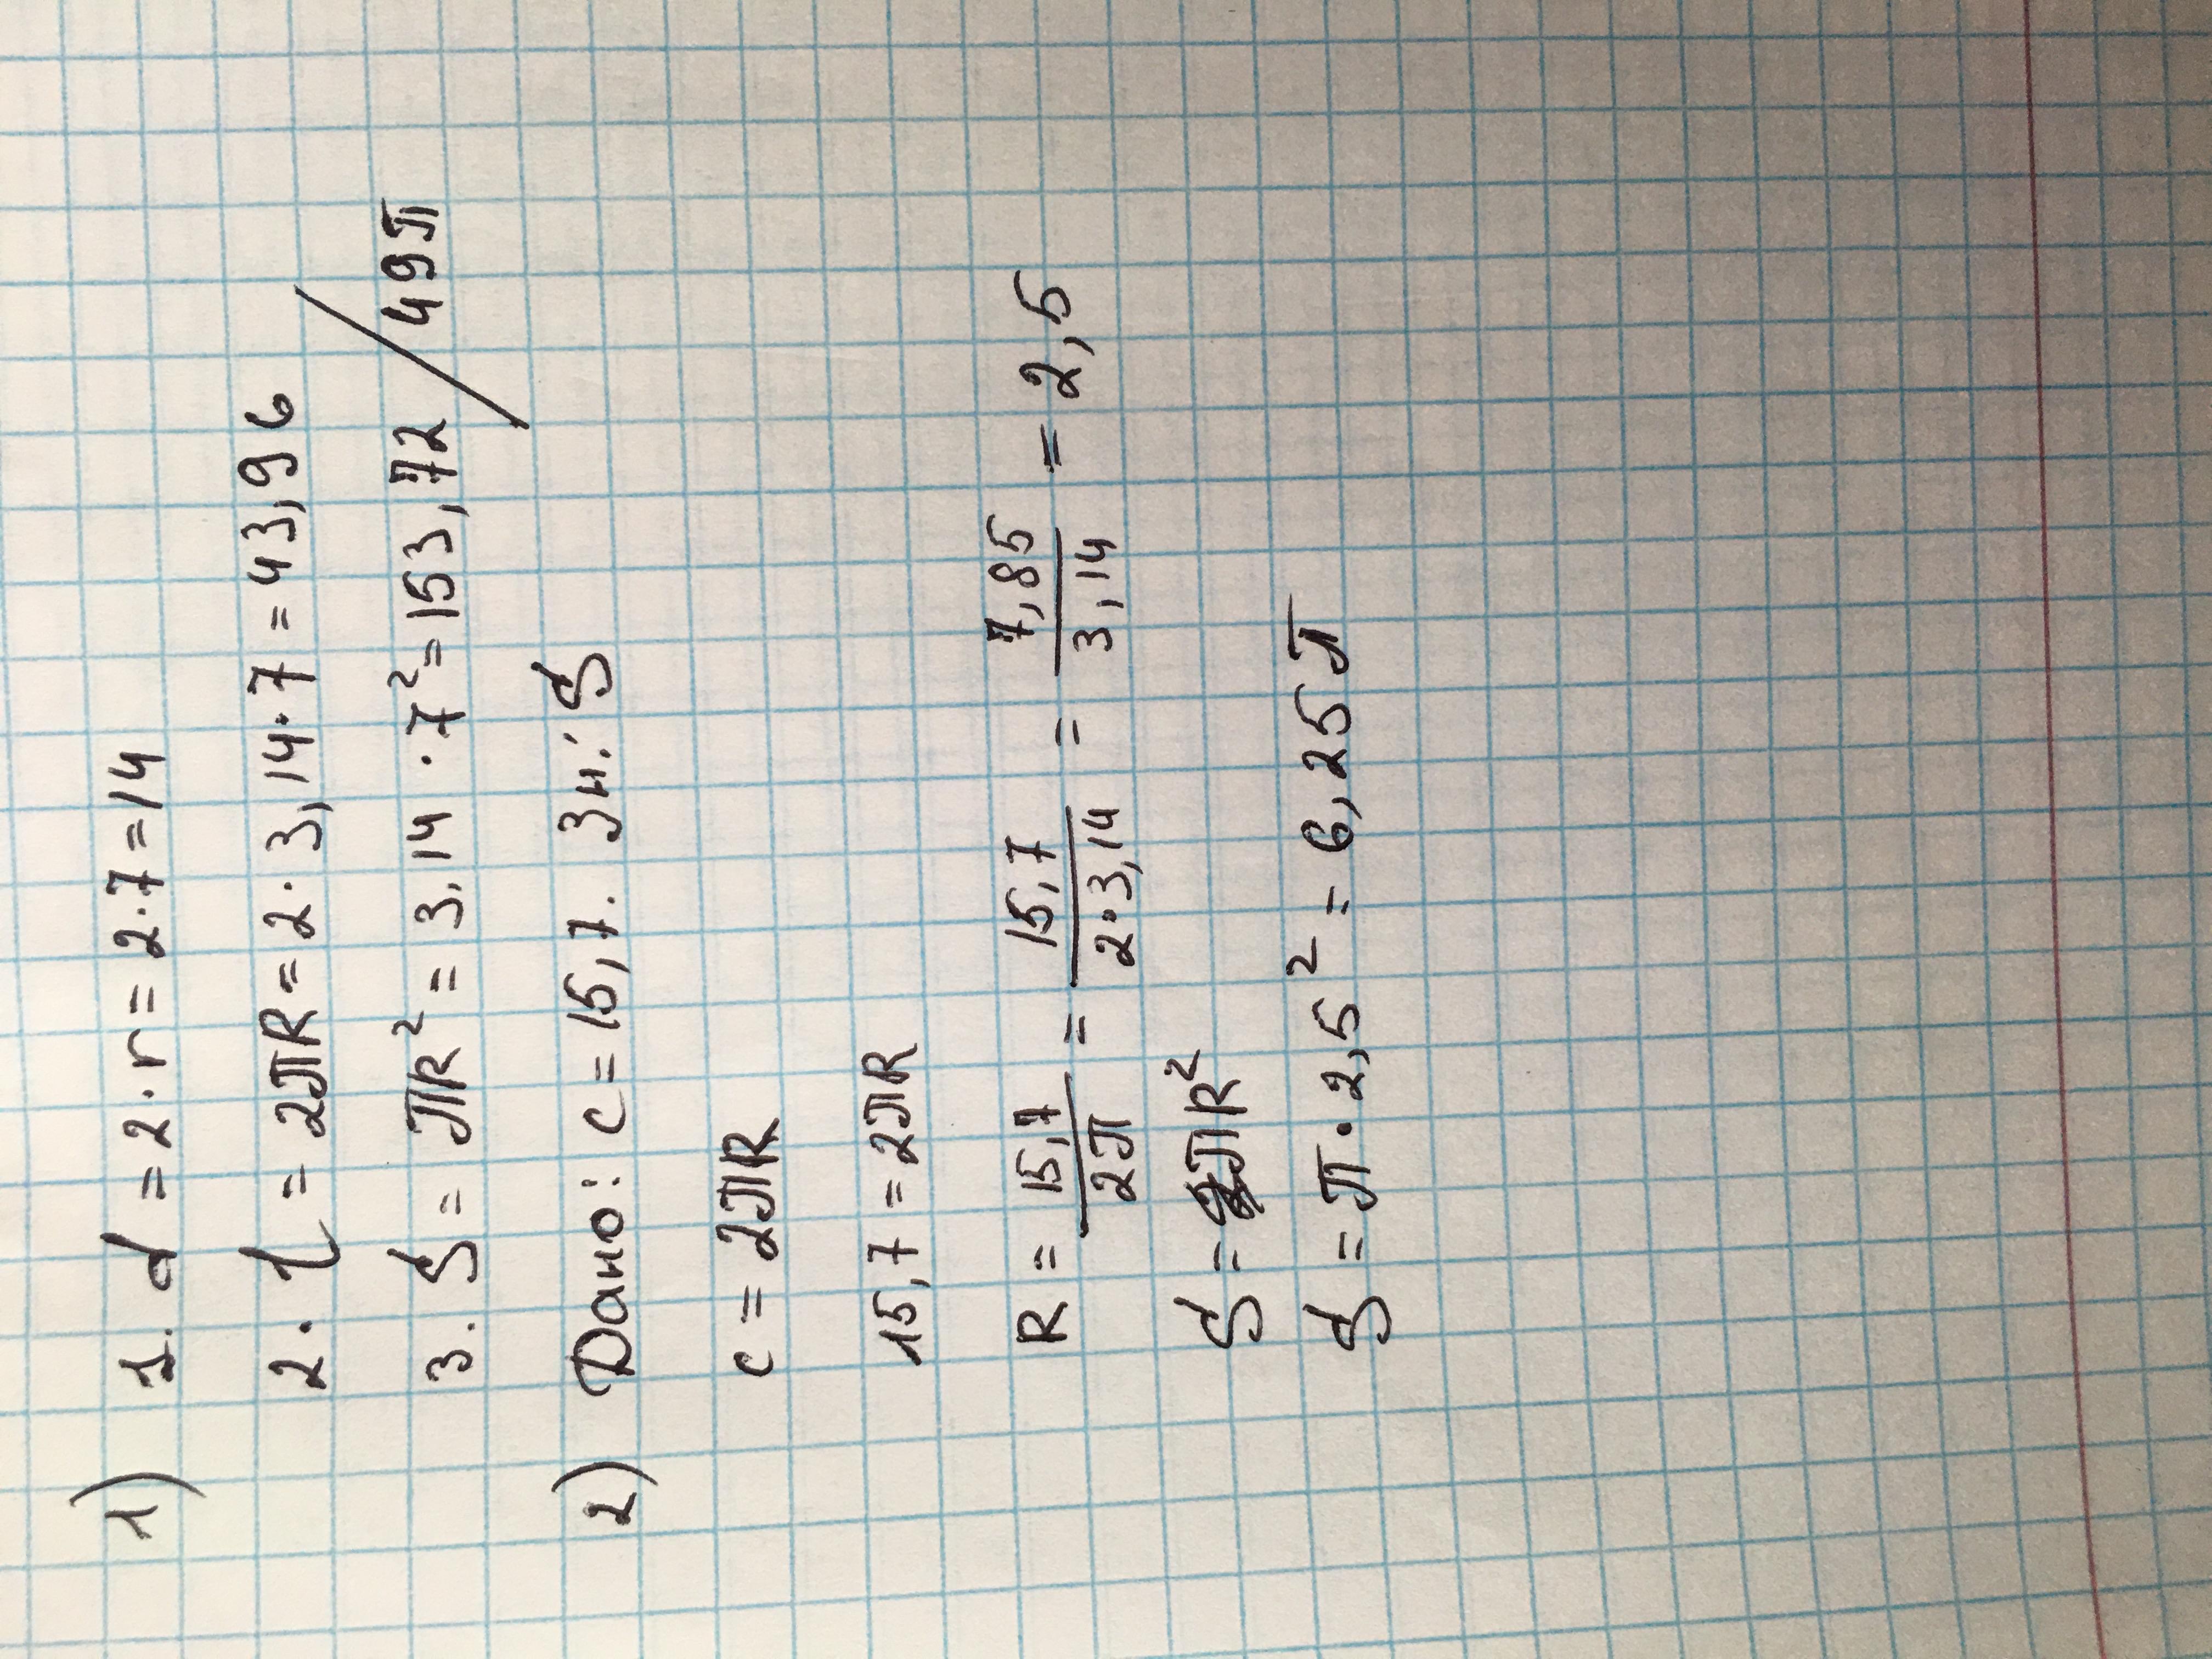 1) 1. d = 2·r = 2·7=14
2. l = 2πR = 2·3,14·7 = 43,96
3. S = πR² = 3,14·7² = 153,72 / 49π
2) Дано: c = 15,7. Зн: S
c = 2πR
15,7 = 2πR
R = 15,7/2π = 15,7/2·3,14 = 7,85/3,14 = 2,5
S = πR²
S = π·2,5² = 6,25π